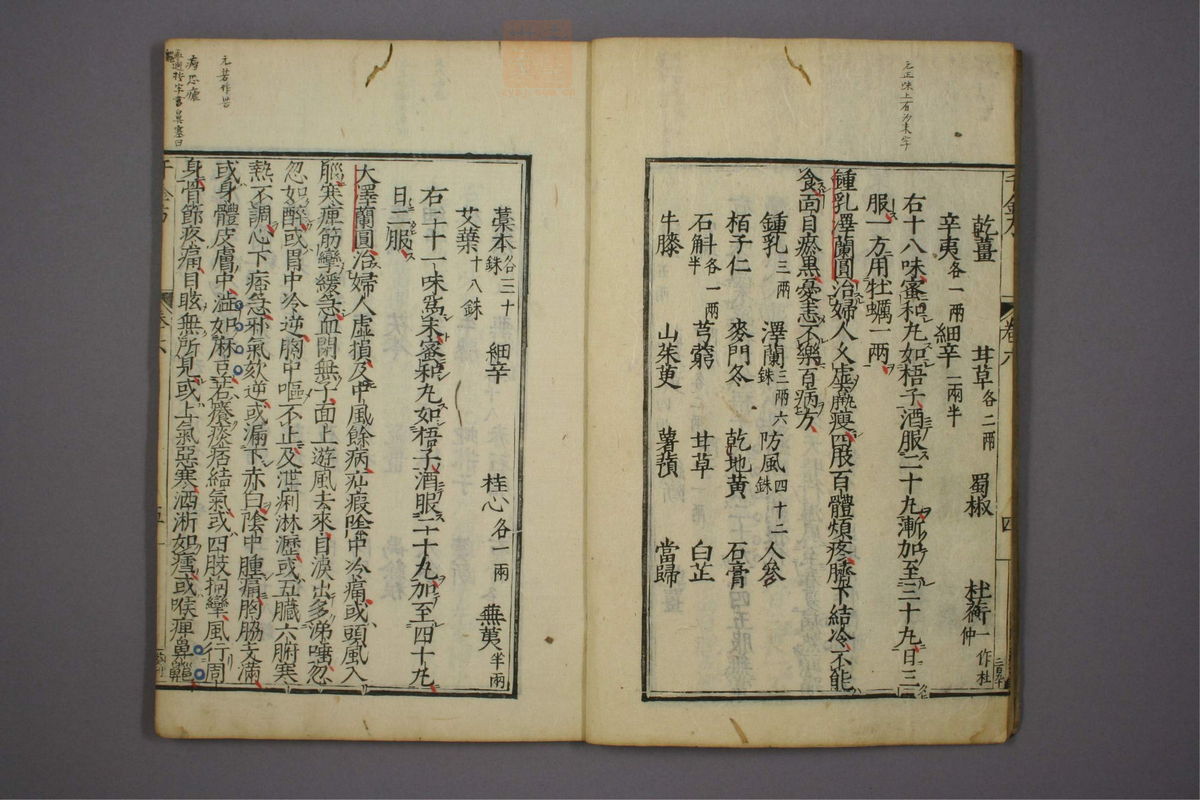 元正味上有為末字
乾薑 甘草各二兩 蜀椒 杜衡一作杜仲
辛夷各一兩 細辛一兩半
右十八味蜜和丸如梧子酒服二十丸漸加至三十丸日三
服一方用牡蠣一兩
鍾乳澤蘭圓治婦人久虛羸瘦四肢百體煩疼臍下結冷不能
食面目瘀黑憂恚不樂百病方
鍾乳三兩 澤蘭三兩六銖 防風四十二銖 人參
栢子仁 麥門冬 乾地黃 石膏
石斛各一兩半 芎藭 甘草 白芷
牛膝 山茱萸 薯蕷 當歸
藁本各三十銖 細辛 桂心各一兩 蕪荑半兩
艾葉十八銖
右二十一味為末蜜和丸如梧子酒服二十丸加至四十丸
日二服
大澤蘭圓治婦人虛損及中風餘病疝瘕陰中冷痛或頭風入
腦寒痺筋攣緩急血閉無子面上遊風去來目淚出多涕唾忽
忽如醉或胃中冷逆胸中嘔不止及泄痢淋瀝或五臟六腑寒
熱不調心下痞急邪氣欬逆或漏下赤白陰中腫痛胸脇支滿
或身體皮膚中澁如麻豆若癢痰痞結氣或四肢拘攣風行周
身骨節疼痛目眩無所見或上氣惡寒洒淅如瘧或喉痺鼻齆
元若作苦
千金方 卷六 四